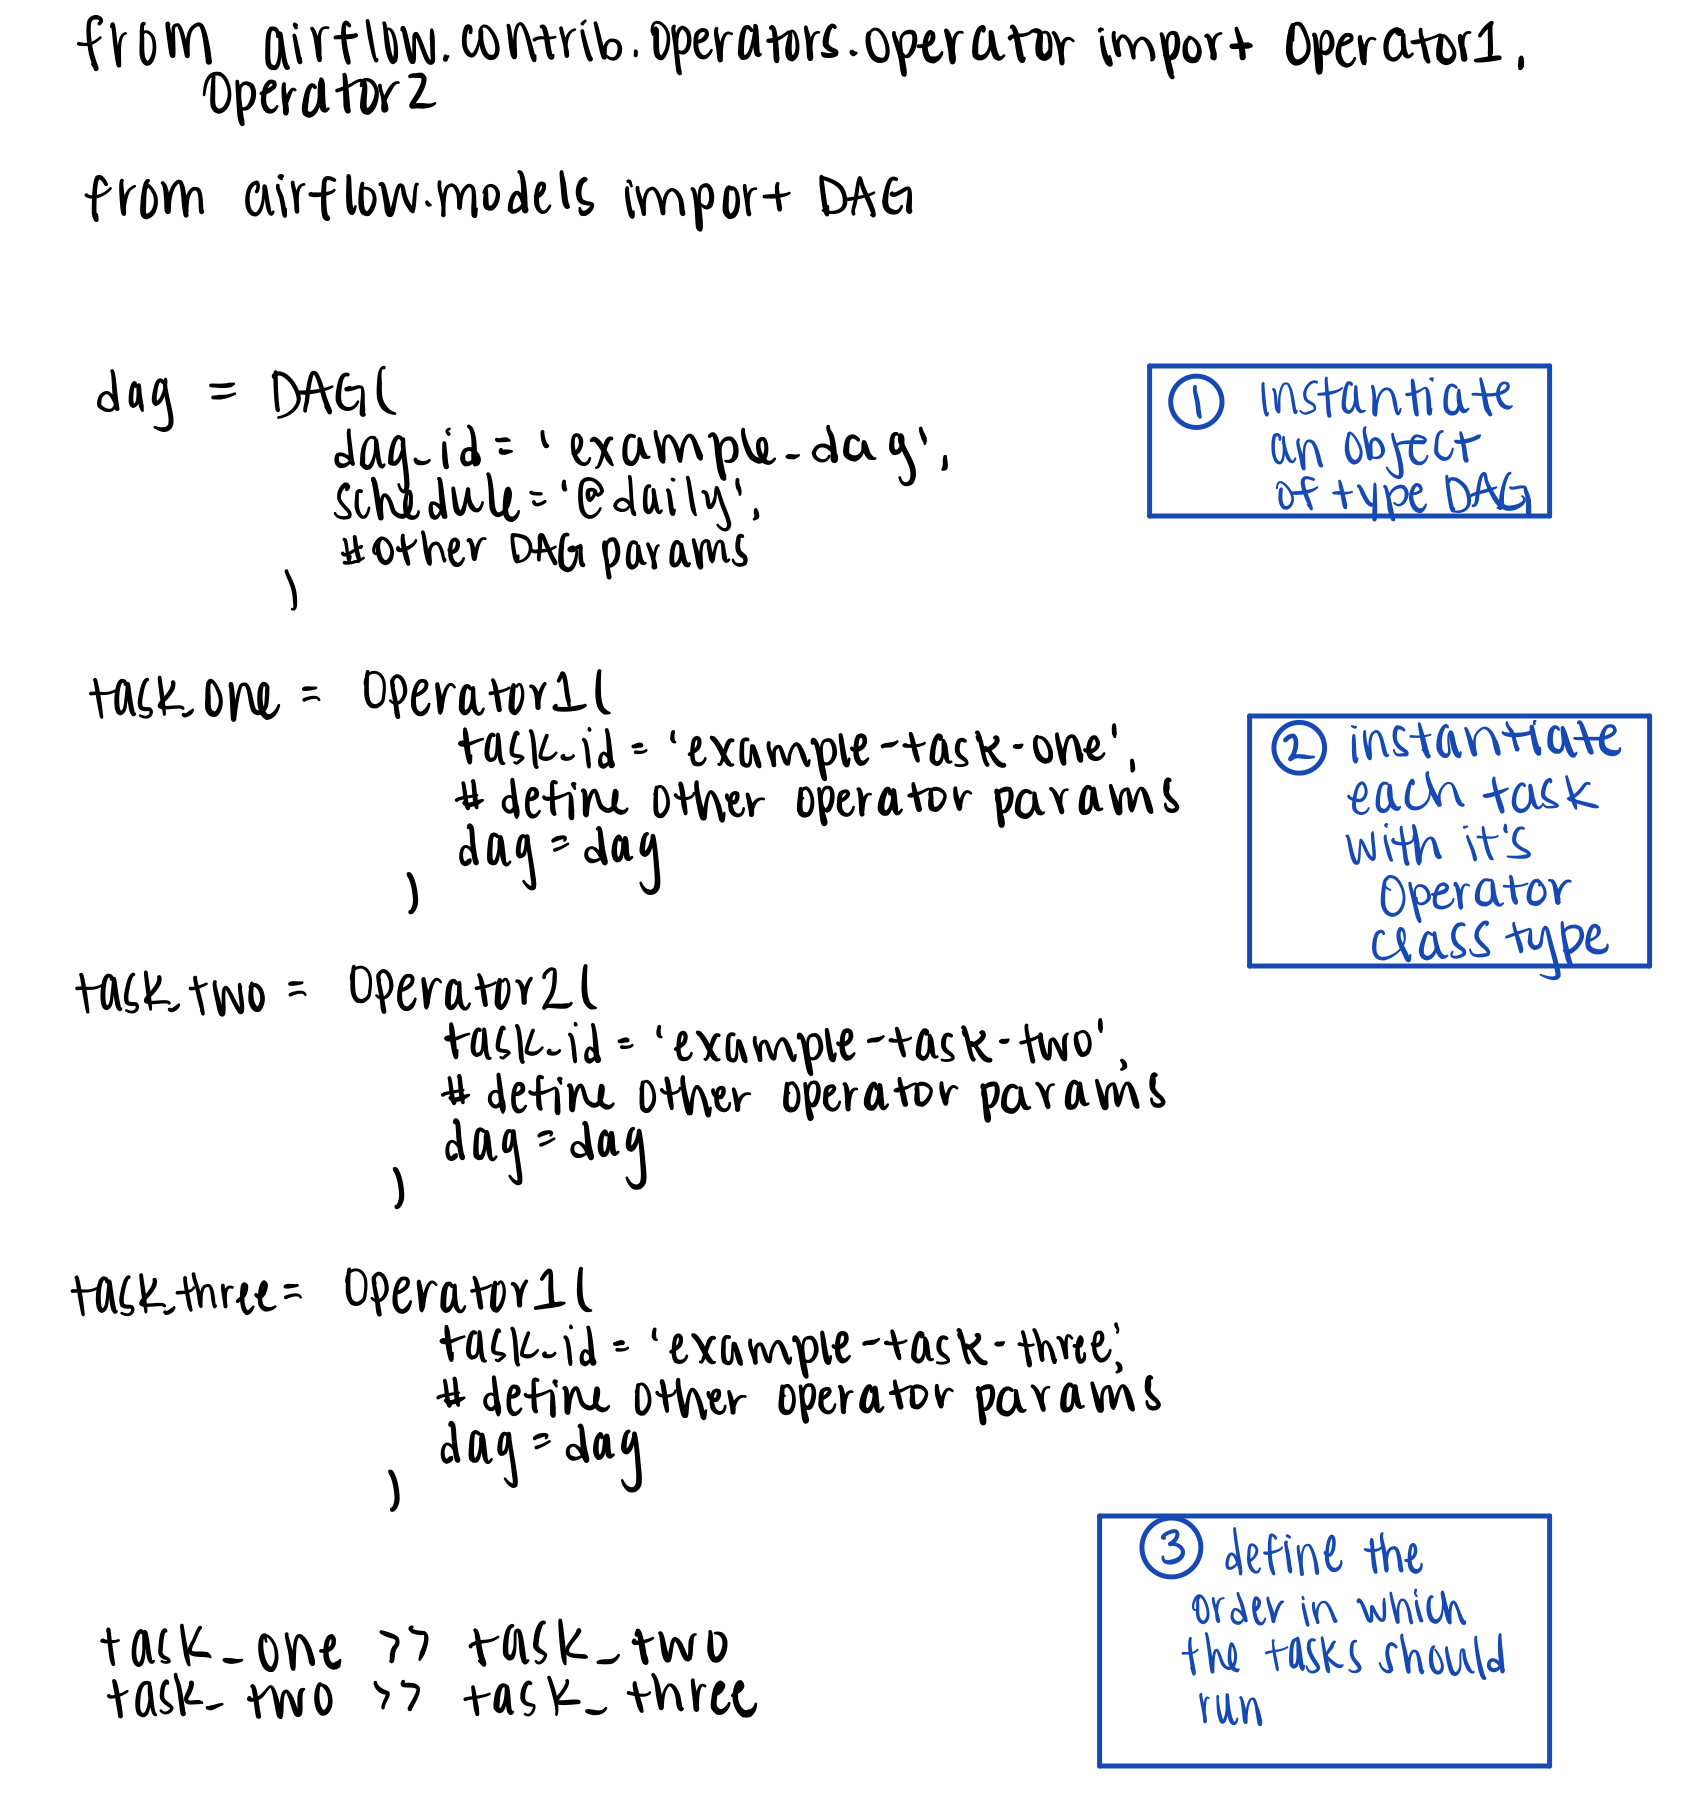 from airflow.contrib.operators.operator import Operator1,
Operator2
from airflow.models import DAG
dag = DAG(
dag_id = 'example-dag',
schedule = '@daily',
#other DAG params
)
① Instantiate
an object
of type DAG
task_one = Operator1(
task_id = 'example-task-one',
# define other operator params
dag = dag
)
② instantiate
each task
with it's
Operator
class type
task_two = Operator2(
task_id = 'example-task-two',
# define other operator params
dag = dag
)
task_three = Operator1(
task_id = 'example-task-three',
# define other operator params
dag = dag
)
③ define the
order in which
the tasks should
run
task_one >> task_two
task_two >> task_three